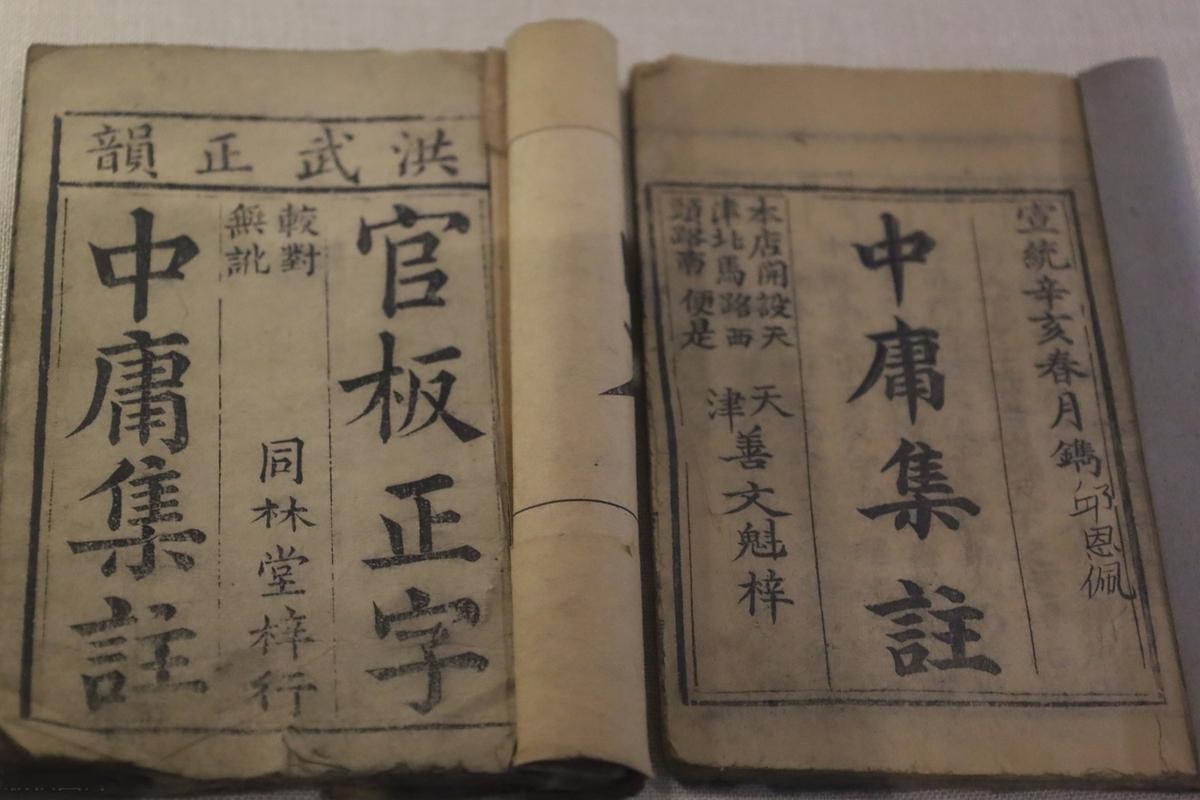 洪武正韻
官板正字
較對
無訛
同林堂梓行
中庸集註
宣統辛亥春月鐫
邱恩佩
中庸集註
本店開設天
津北馬路西
頭路南便是
天津
善文魁梓